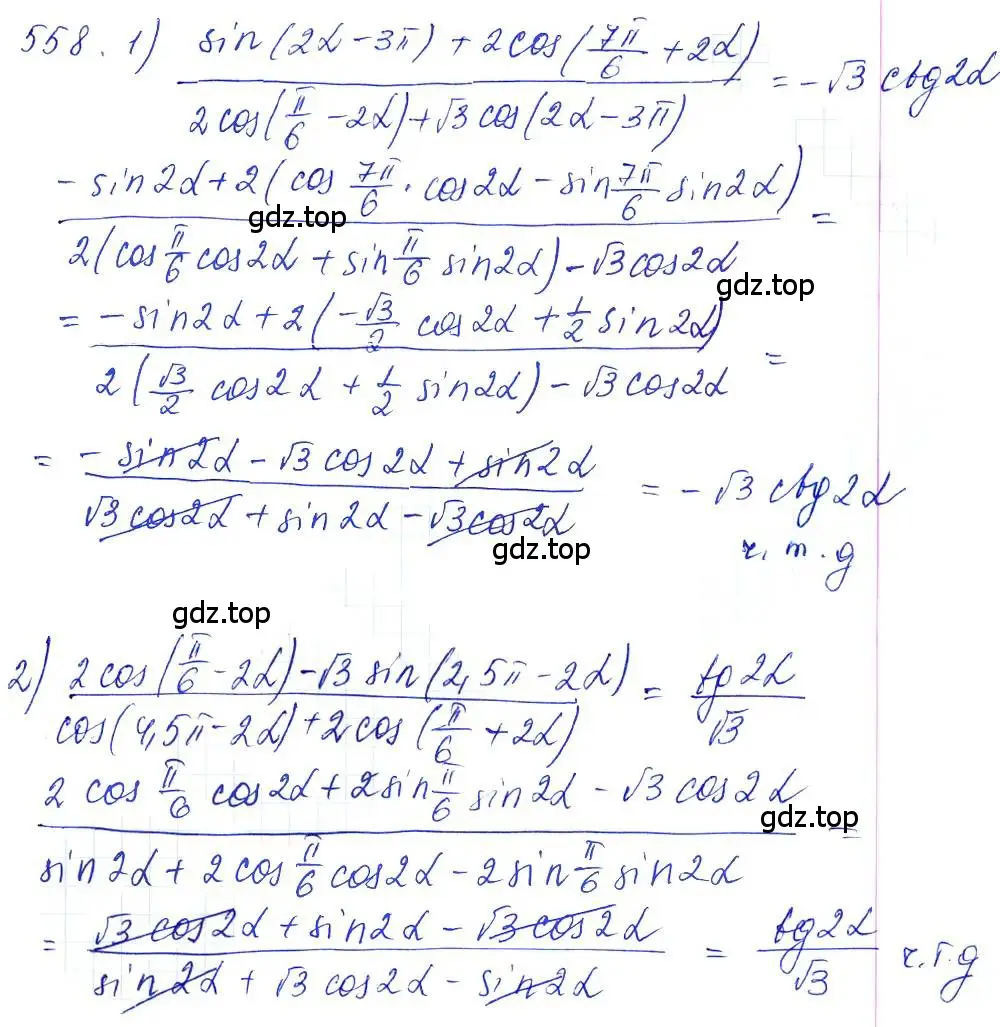 558. 1) sin(2α-3π) + 2cos(7π/6 + 2α) / 2cos(π/6 - 2α) + √3 cos(2α-3π) = -√3 ctg2α
-sin2α + 2(cos 7π/6 · cos2α - sin 7π/6 sin2α) / 2(cos π/6 cos2α + sin π/6 sin2α) - √3cos2α =
gdz.top
gdz.top
= -sin2α + 2(-√3/2 cos2α + 1/2 sin2α) / 2(√3/2 cos2α + 1/2 sin2α) - √3cos2α =
= -sin2α - √3 cos2α + sin2α / √3cos2α + sin2α - √3cos2α = -√3 ctg2α
ч. т. д
gdz.top
gdz.top
2) 2cos(π/6 - 2α) - √3 sin(2,5π - 2α) / cos(4,5π - 2α) + 2cos(π/6 + 2α) = tg2α / √3
2 cos π/6 cos2α + 2sin π/6 sin2α - √3cos2α / sin2α + 2cos π/6 cos2α - 2sin π/6 sin2α =
gdz.top
= √3cos2α + sin2α - √3cos2α / sin2α + √3cos2α - sin2α = tg2α / √3 ч.т.д